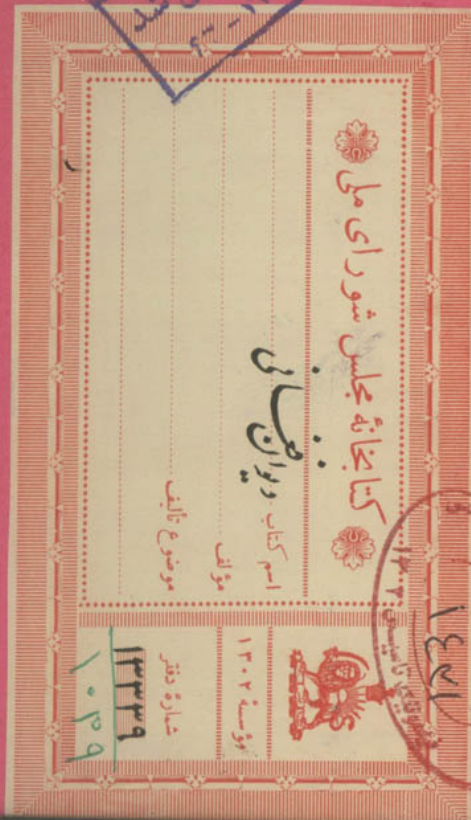 کتابخانهٔ مجلس شورای ملی
اسم کتاب دیوان فغانی
مؤلف
موضوع تألیف
مؤسسهٔ ۱۳۰۲
شمارهٔ دفتر
۱۳۳۳۹
۱۰۳۹
۱۴۲۱
شد